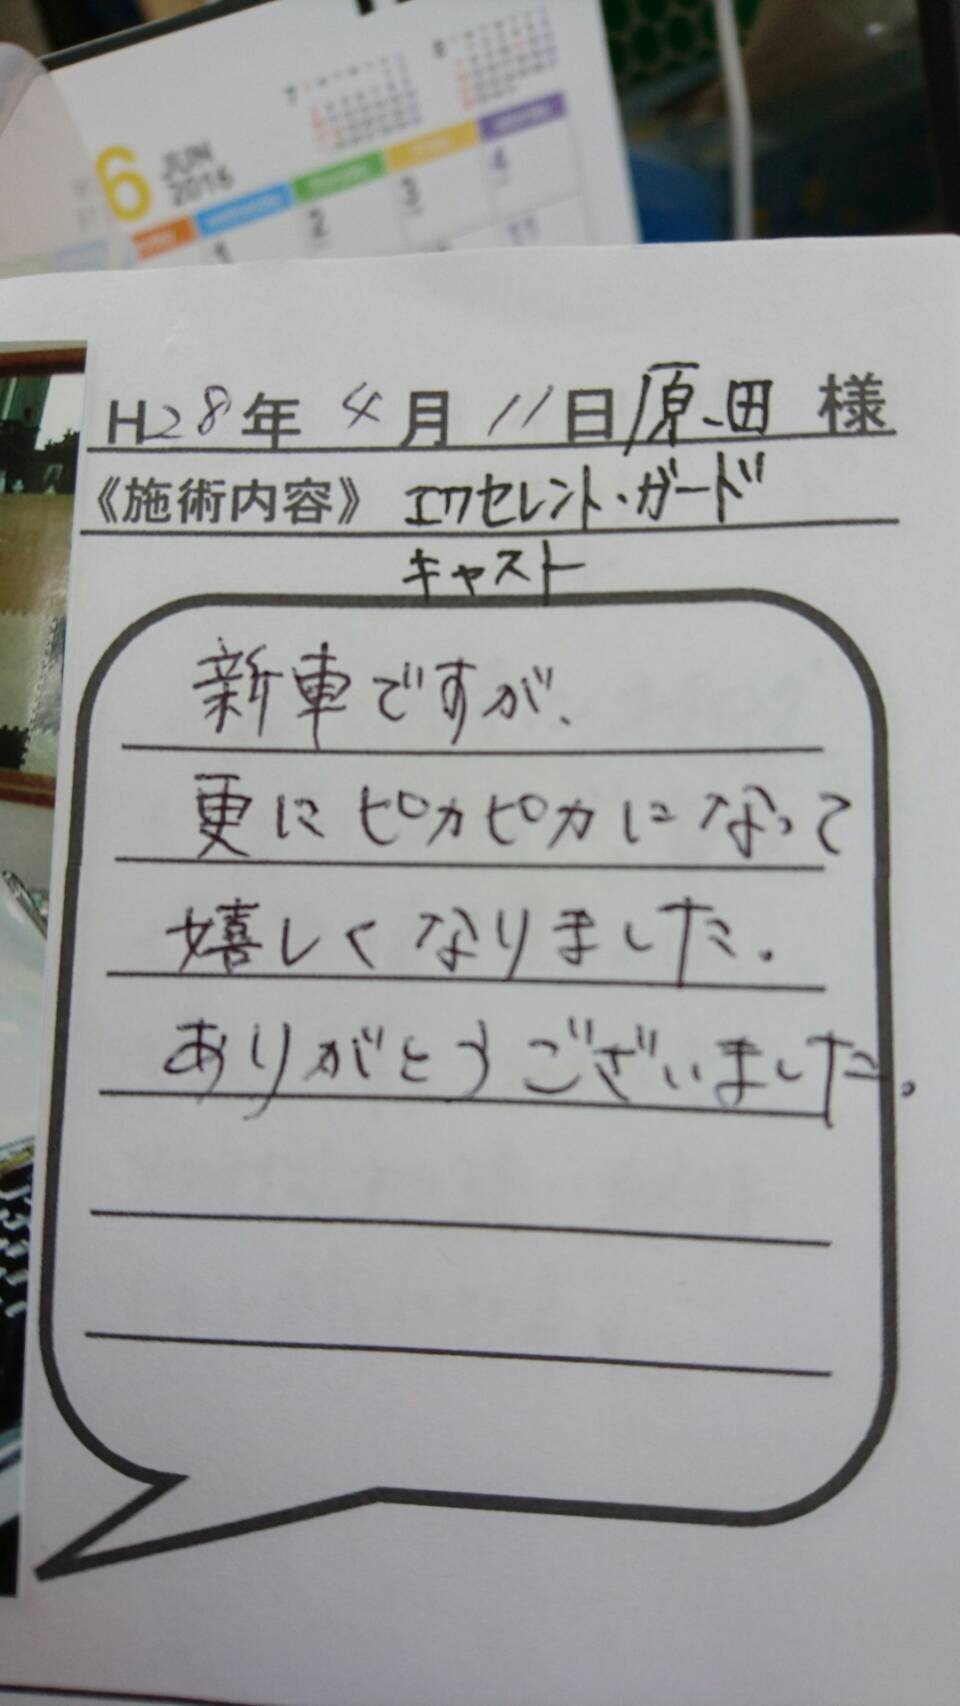 6
JUN
2016
7
8
1
2
3
4
11
H28年 4月 11日 原田 様
《施術内容》 エクセレント・ガード
キャスト
新車ですが、
更に ピカピカになって
嬉しくなりました。
ありがとうございました。